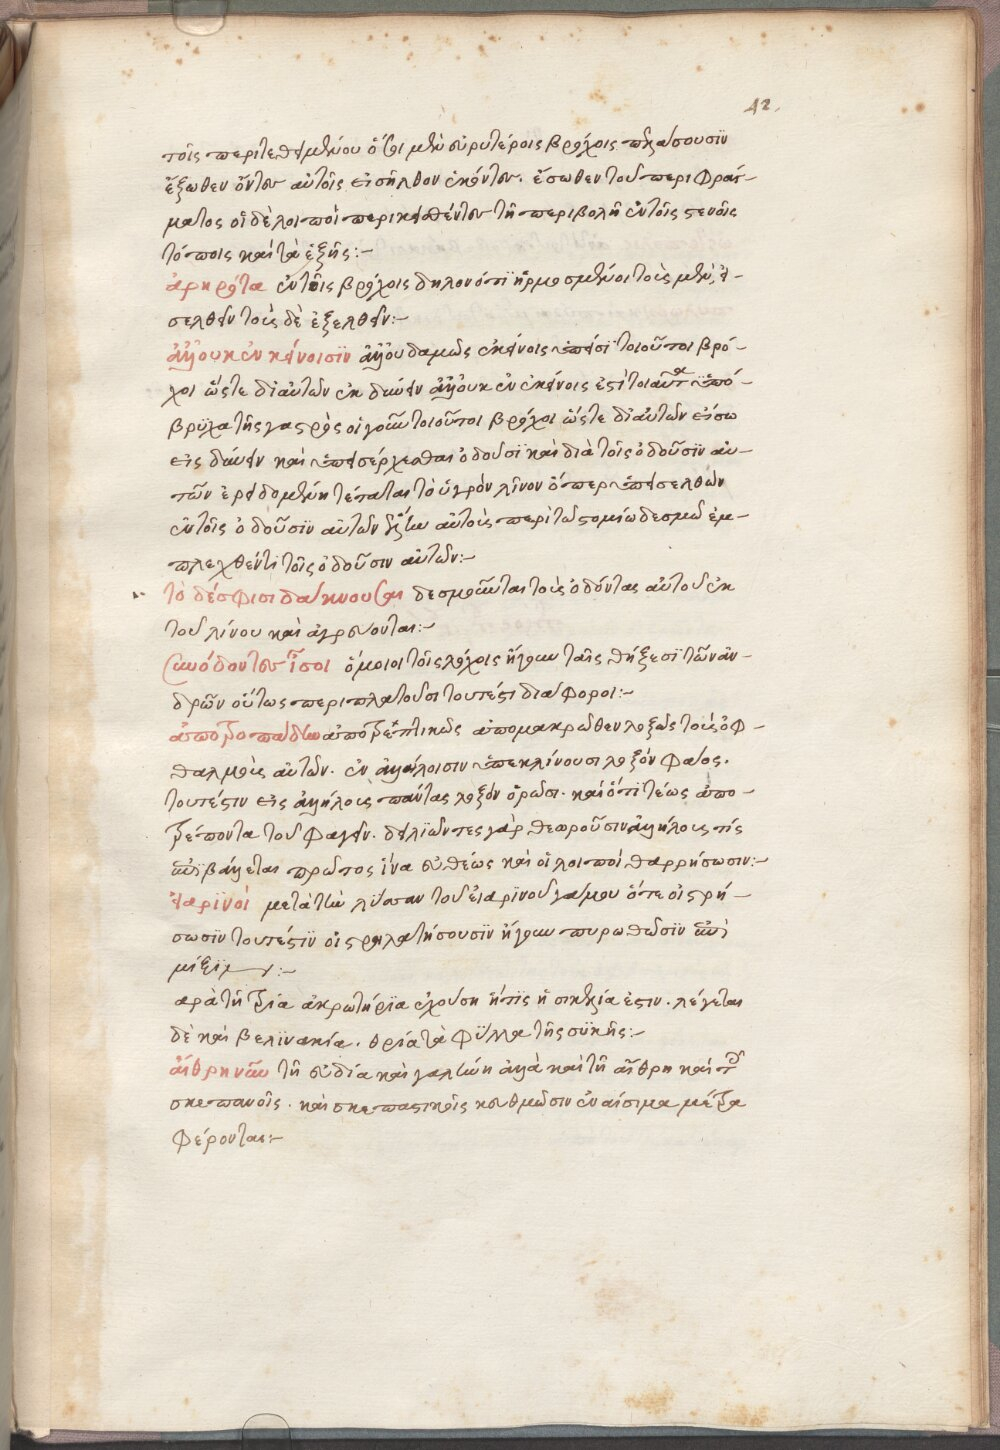 42.
τοῖς περιτεθειμένου ὅσοι μὲν εὐρυτέροις βρόχοις πελάσουσιν
ἔξωθεν ὄντων αὐτοῖς εἰσῆλθον ἑκόντες. ἔσωθεν τοῦ περιφράγ-
ματος οἱ δὲ λοιποὶ περικαθέντων τῇ περιβολῇ ἐν τοῖς στενοῖς
τόποις καὶ τὰ ἑξῆς:-
ἀρηρότα ἐν τοῖς βρόχοις δηλονότι ἡρμοσμένοι τοὺς μὲν εἰ-
σελθεῖν τοὺς δὲ ἐξελθεῖν:-
ἀλλ' οὐκ ἐν κείνοισιν ἀλλ' οὐδαμῶς ἐκείνοις ἔπεισι τοιοῦτοι βρό-
χοι ὥστε δι' αὐτῶν ἐκδύνειν ἀλλ' οὐκ ἐν ἐκείνοις ἐστὶ τοιαῦτα ὑπό-
βρυχα τῆς γαστρὸς οἱ γοῦν τοιοῦτοι βρόχοι ὥστε δι' αὐτῶν εἴσω
εἰς δύνειν καὶ ἐπεισέρχεσθαι ὀδοῦσι καὶ διὰ τοῖς ὀδοῦσιν αὐ-
τῶν ἐρειδομένη τέταται τὸ ὑγρὸν λῖνον ὅπερ ἐπεισελθὼν
ἐν τοῖς ὀδοῦσιν αὐτῶν αὐτοὺς περὶ τῷ στομίῳ δεσμῷ ἐμ-
πλεχθέντι τοῖς ὀδοῦσιν αὐτῶν:-
τὸ δέ σφισι δάκνουσαι δεσμοῦνται τοὺς ὀδόντας αὐτοῦ ἐκ
τοῦ λίνου καὶ ἀγρεύονται:-
κυνόδοντων ἶσοι ὅμοιοι τοῖς λόχοις ἤγουν ταῖς θήξεσι τῶν ἀν-
δρῶν οὕτως περιπλατοῦσι τουτέστι διάφοροι:-
ἀπότροπα δίω ἀποτρεπτικῶς ἀπομακρώθεν λοξῶς τοὺς ὀφ-
θαλμοὺς αὐτῶν. ἐν ἀλλήλοισιν ἐπεκλίνουσι λοξὸν φάος.
τουτέστιν εἰς ἀλλήλους πάντας λοξὸν ὁρῶσι. καὶ ὅτι τέως ἀπο-
τρέποντα τοῦ φαγεῖν. δειλιῶντες γὰρ θεωροῦσιν ἀλλήλους τίς
βάλλεται πρῶτος ἵνα εὐθέως καὶ οἱ λοιποὶ θαρρήσωσιν:-
εἰαρινοὶ μετὰ τὴν λύσσαν τοῦ ἐϊαρινοῦ γάμου ὅτε οἰστρή-
σωσιν τουτέστιν οἰστρηλατήσουσιν ἤγουν πυρωθῶσιν ἐπὶ
μίξιν:-
αρὰ τῇ τρία ἀκρωτήρια ἐχούση ἥτις ἡ σικελία ἐστιν. λέγεται
δὲ καὶ βελινακία. θρία τὰ φύλλα τῆς συκῆς:-
αἴθρη νῦν τῇ εὐδία καὶ γαλήνη ἀλλὰ καὶ τῇ αἴθρη καὶ τοῦ
σκεπανοῖς. καὶ σκεπαστικοῖς κευθμῶσιν ἐναίσιμα μέτρα
φέρονται:-